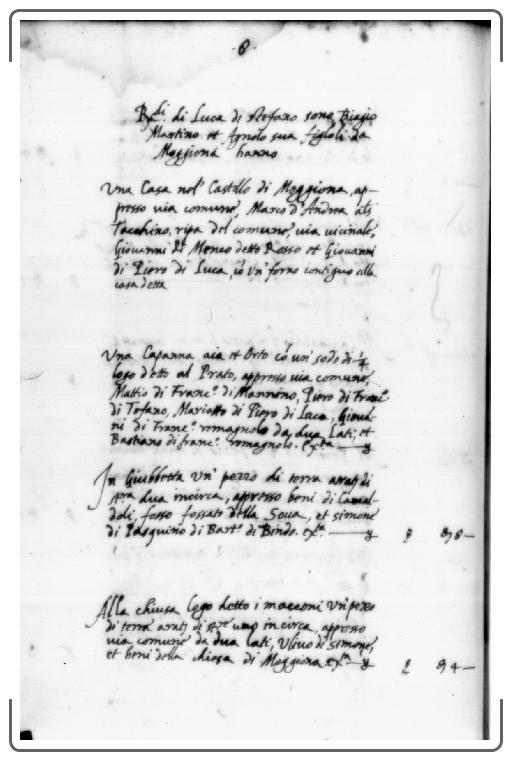 8.
Rdi. di Luca di Stefano sono Biagio
Martino et Agnolo sua figloli da
Moggiona hanno
Una Casa nel Castello di Moggiona, ap-
presso via comune, Marco d'Andrea als
Tacchino, ripa del comune, via vicinale,
Giovanni di Menco detto Rosso et Giovanni
di Piero di Luca, cō un' forno contiguo alla
casa detta
Una Capanna aia et Orto cō un' sodo di 1/4
logo detto al Prato, appresso via comune,
Mattio di Franc.º di Mannino, Piero di Franc.º
di Tofano, Mariotto di Piero di Luca, Giova-
ni di Franc.º romagnolo da dua Lati, et
Bastiano di franc.º romagnolo. exta
In Giubbetta un' pezzo di terra di
dua incirca, appresso beni di Camal-
doli, fosso fossato della Sova, et simone
di Pasquino di Bart.º di Bindo. exta
Alla chiusa logo detto i macconi un pezzo
di terra di uno incirca, appresso
via comune da dua lati, Ulivo di simone,
et beni della chiesa di Moggiona. exta